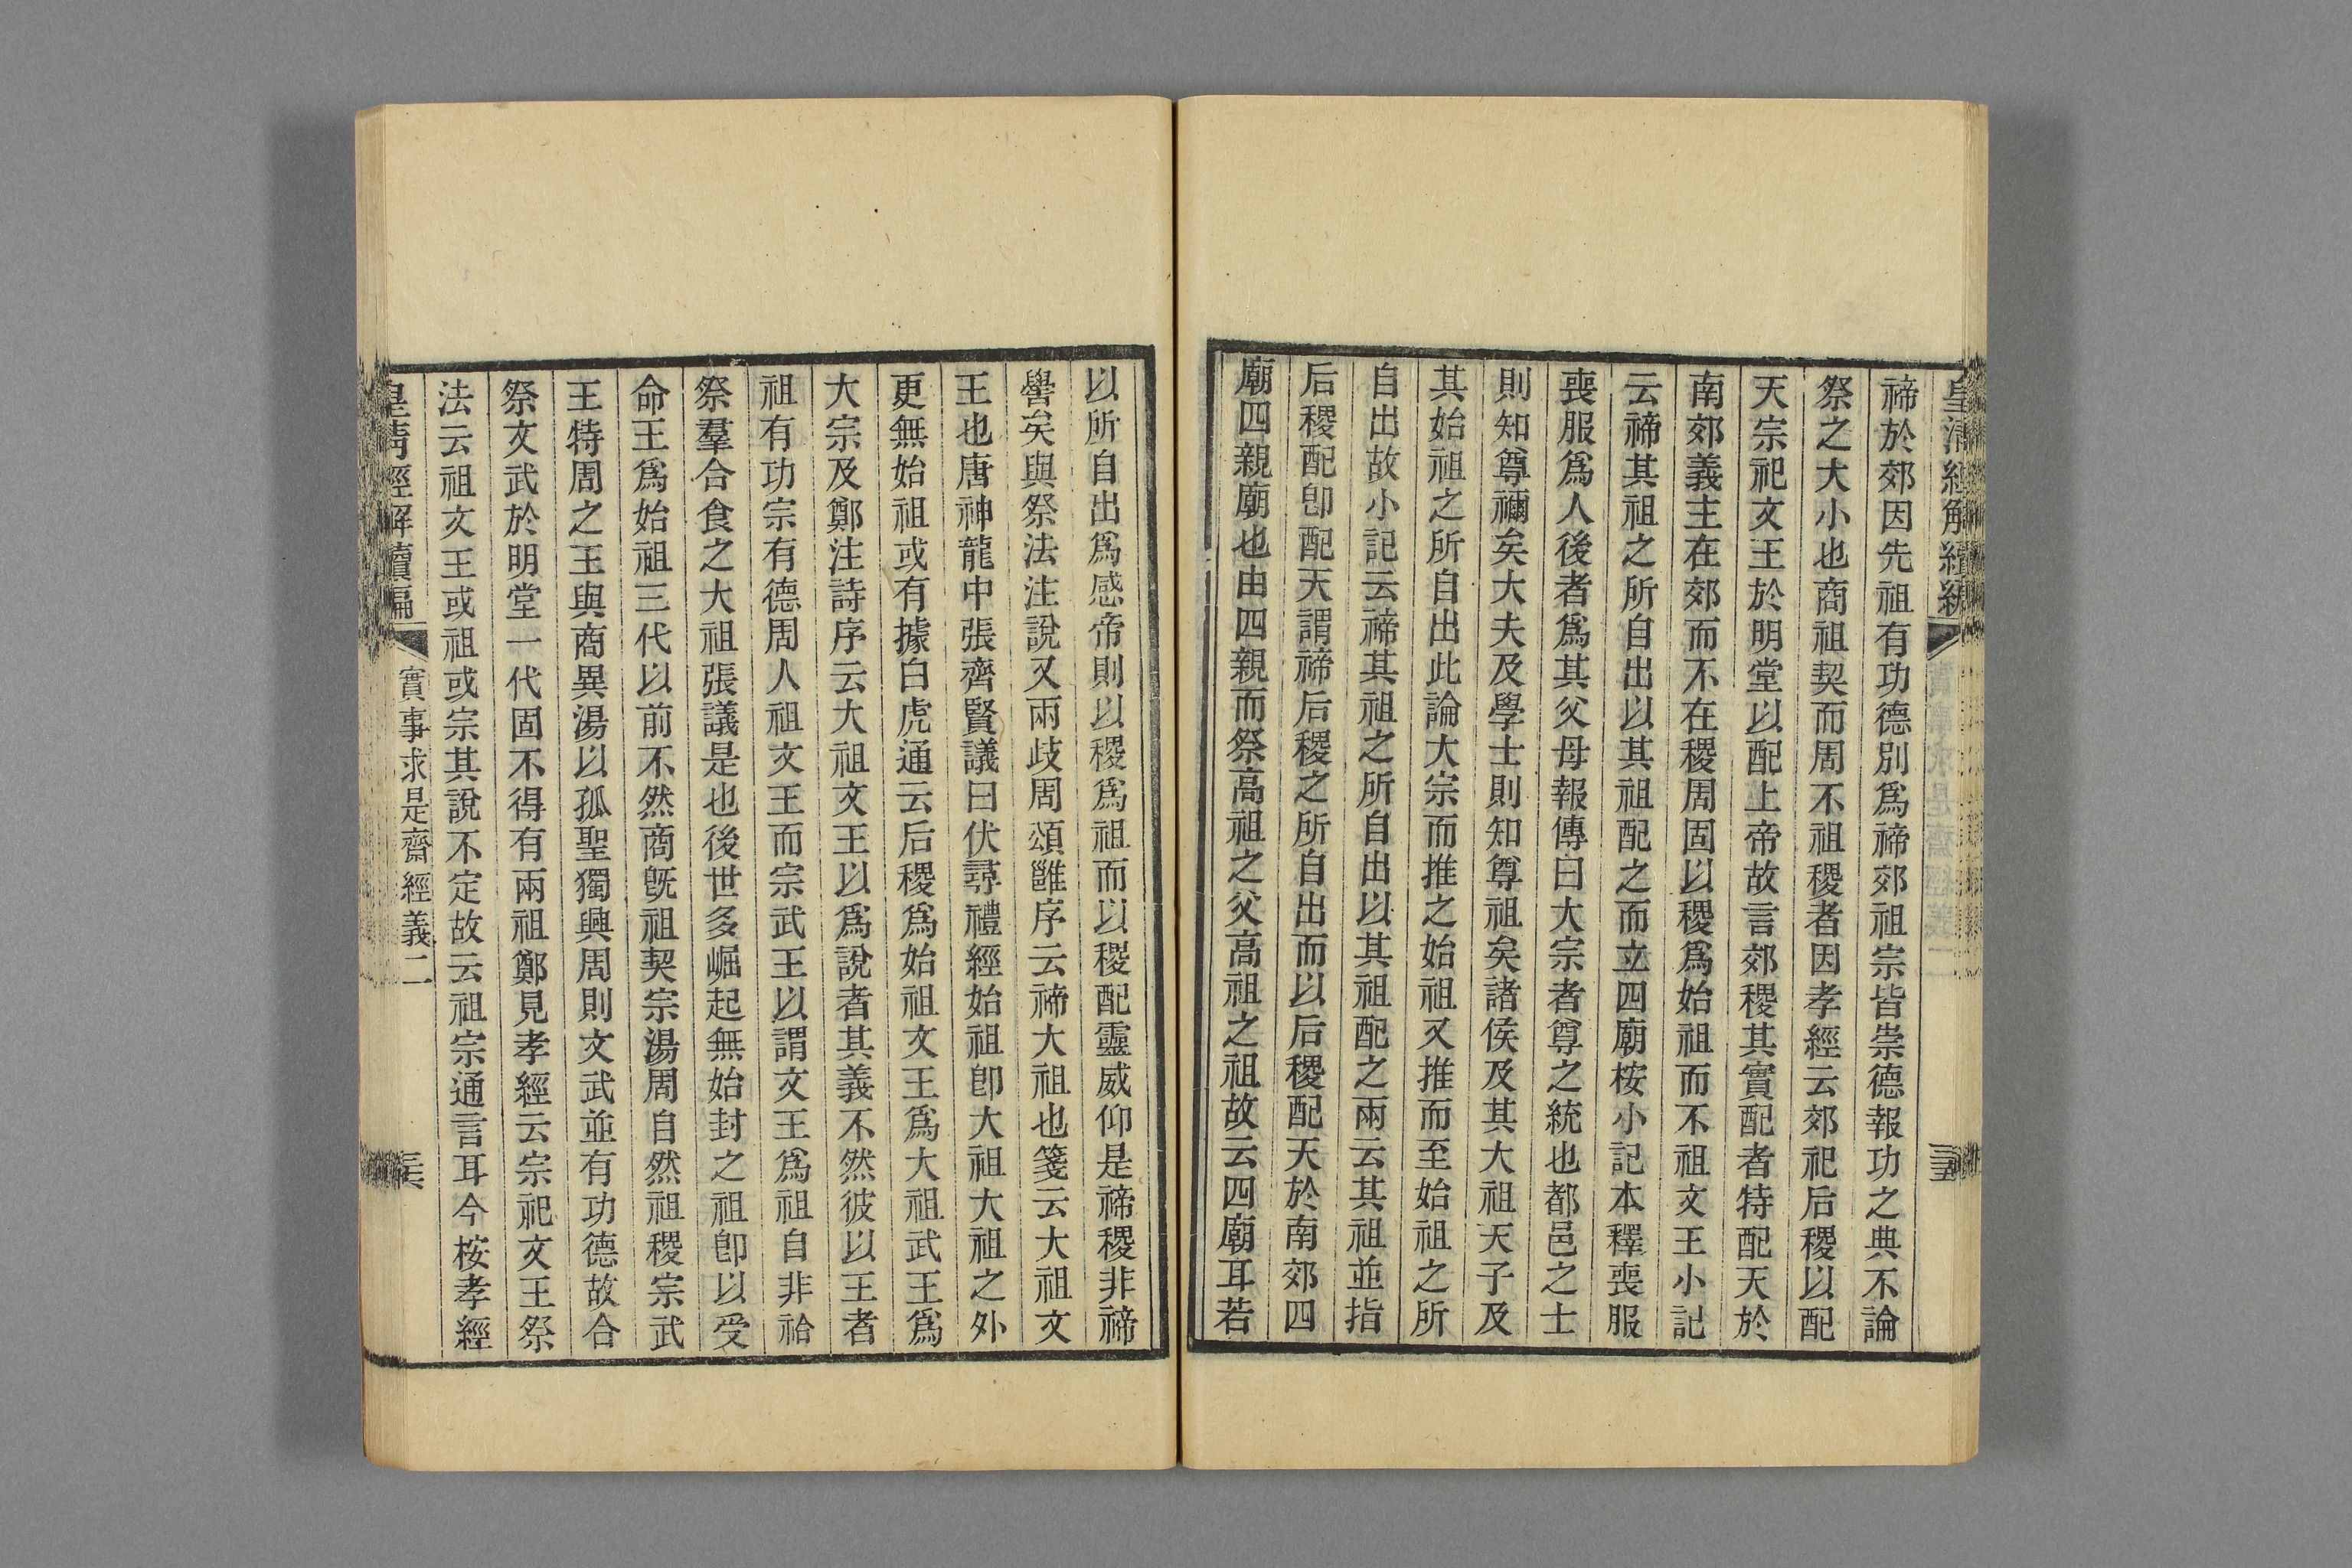 皇清經解續編
禘於郊因先祖有功德別爲禘郊祖宗皆崇德報功之典不論
祭之大小也商祖契而周不祖稷者因孝經云郊祀后稷以配
天宗祀文王於明堂以配上帝故言郊稷其實配者特配天於
南郊義主在郊而不在稷周固以稷爲始祖而不祖文王小記
云禘其祖之所自出以其祖配之而立四廟桉小記本釋喪服
喪服爲人後者爲其父母報傳曰大宗者尊之統也都邑之士
則知尊禰矣大夫及學士則知尊祖矣諸侯及其大祖天子及
其始祖之所自出此論大宗而推之始祖又推而至始祖之所
自出故小記云禘其祖之所自出以其祖配之兩云其祖並指
后稷配卽配天謂禘后稷之所自出而以后稷配天於南郊四
廟四親廟也由四親而祭高祖之父高祖之祖故云四廟耳若
以所自出爲感帝則以稷爲祖而以稷配靈威仰是禘稷非禘
嚳矣與祭法注說又兩歧周頌雝序云禘大祖也箋云大祖文
王也唐神龍中張齊賢議曰伏尋禮經始祖卽大祖大祖之外
更無始祖或有據白虎通云后稷爲始祖文王爲大祖武王爲
大宗及鄭注詩序云大祖文王以爲說者其義不然彼以王者
祖有功宗有德周人祖文王而宗武王以謂文王爲祖自非祫
祭羣合食之大祖張議是也後世多崛起無始封之祖卽以受
命王爲始祖三代以前不然商旣祖契宗湯周自然祖稷宗武
王特周之王與商異湯以孤聖獨興周則文武並有功德故合
祭文武於明堂一代固不得有兩祖鄭見孝經云宗祀文王祭
法云祖文王或祖或宗其說不定故云祖宗通言耳今桉孝經
皇清經解續編 實事求是齋經義二